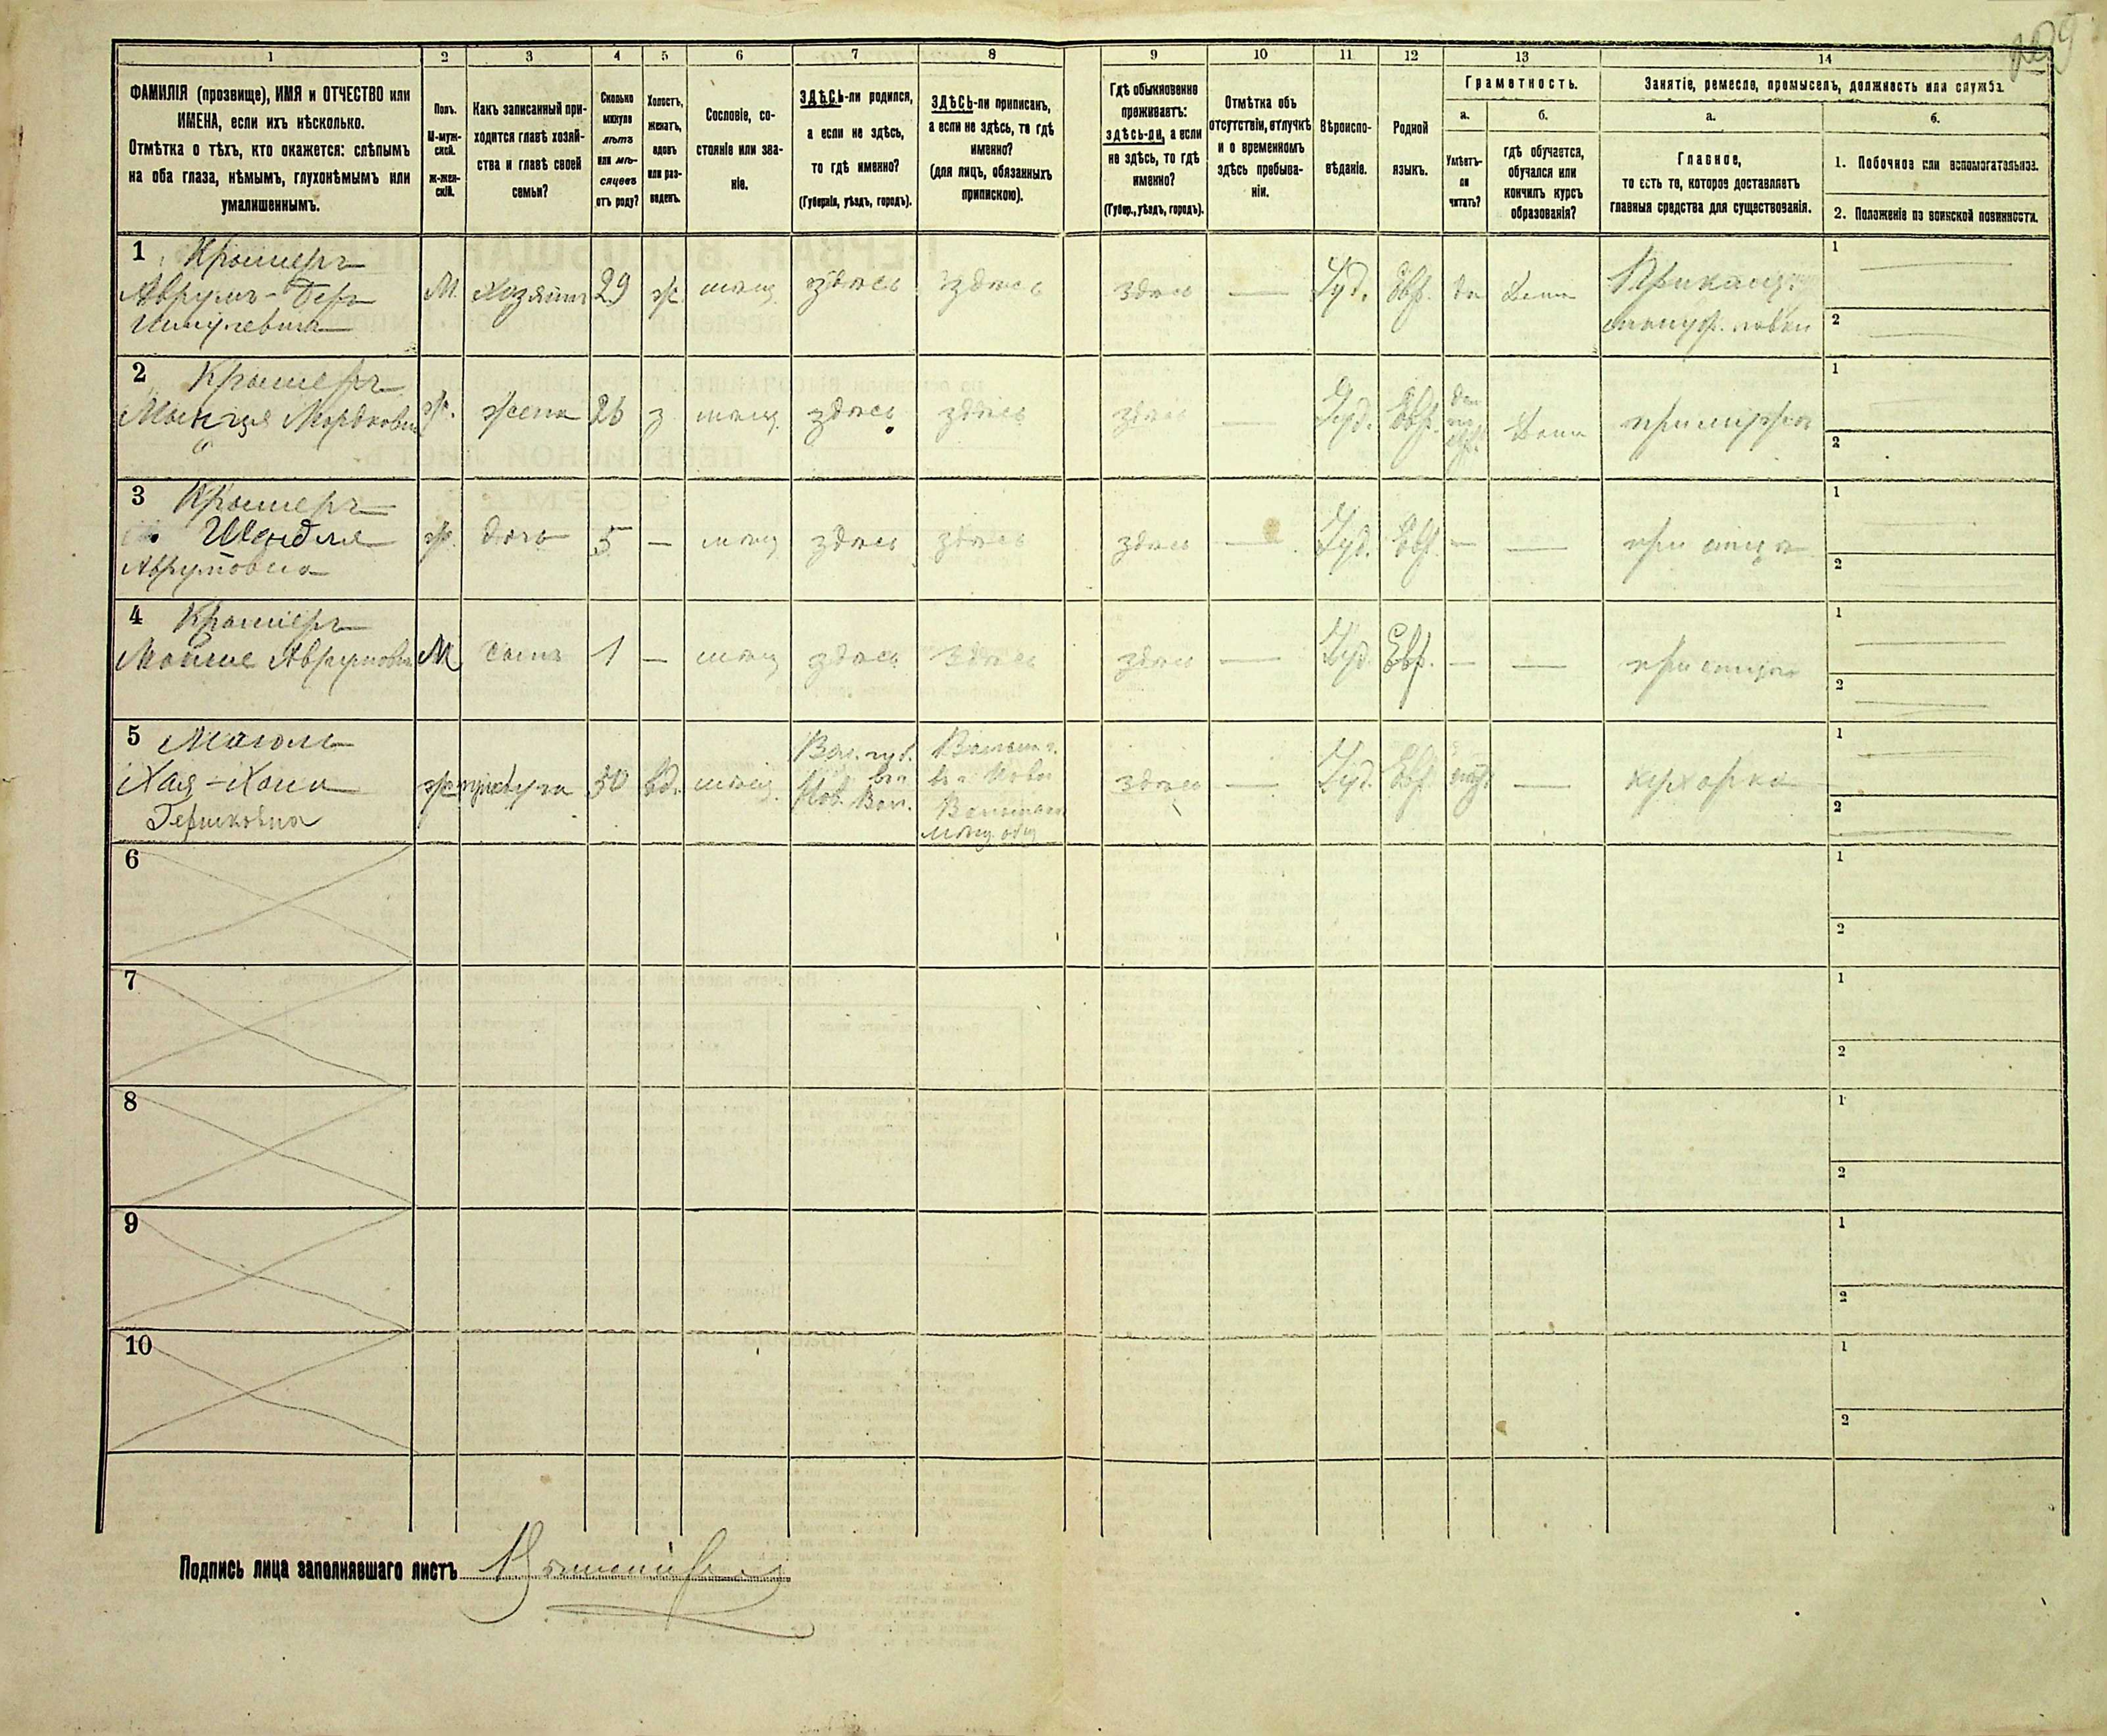 1 2 3 4 5 6 7 8 9 10 11 12 13 14
ФАМИЛІЯ (прозвище), ИМЯ и ОТЧЕСТВО или
ИМЕНА, если ихъ нѣсколько.
Отмѣтка о тѣхъ, кто окажется: слѣпымъ
на оба глаза, нѣмымъ, глухонѣмымъ или
умалишеннымъ.
Полъ.
М-муж-
ской.
Ж-жен-
скій.
Какъ записанный при-
ходится главѣ хозяй-
ства и главѣ своей
семьи?
Сколько
минуло
лѣтъ
или мѣ-
сяцевъ
отъ роду?
Холостъ,
женатъ,
вдовъ
или раз-
веденъ.
Сословіе, со-
стояніе или зва-
ніе.
ЗДѢСЬ-ли родился,
а если не здѣсь,
то гдѣ именно?
(Губернія, уѣздъ, городъ).
ЗДѢСЬ-ли приписанъ,
а если не здѣсь, то гдѣ
именно?
(для лицъ, обязанныхъ
припискою).
Гдѣ обыкновенно
проживаетъ:
здѣсь-ли, а если
не здѣсь, то гдѣ
именно?
(Губер., уѣздъ, городъ).
Отмѣтка объ
отсутствіи, отлучкѣ
и о временномъ
здѣсь пребыва-
ніи.
Вѣроиспо-
вѣданіе.
Родной
языкъ.
Грамотность.
а.
Умѣетъ-
ли
читать?
б.
гдѣ обучается,
обучался или
кончилъ курсъ
образованія?
Занятіе, ремесло, промыселъ, должность или служба.
а.
Главное,
то есть то, которое доставляетъ
главныя средства для существованія.
б.
1. Побочное или вспомогательное.
2. Положеніе по воинской повинности.
1 Крамеръ
Аврумъ-Беръ
М. Хозяинъ 29 ж. мѣщ. здѣсь здѣсь здѣсь — Іуд. Евр. да Дома
мануф. лавки
1
2
2 Крамеръ
ж. жена 26 з мѣщ. здѣсь здѣсь здѣсь — Іуд. Евр. Дома при мужѣ
1
2
3 Крамеръ
Шендля
Аврумовна
ж. дочь 5 — мѣщ здѣсь здѣсь здѣсь — Іуд. Евр. — — при отцѣ
1
2
4 Крамеръ
Мойше Аврумовичъ М сынъ 1 — мѣщ здѣсь здѣсь здѣсь — Іуд. Евр. — — при отцѣ
1
2
5
Хая-Хана
Гершковна
ж прислуга 50 вд. мѣщ.
Вол. губ.
Нов. Вол.
мѣщ. общ
здѣсь — Іуд. Евр. — кухарка
1
2
6
1
2
7
1
2
8
1
2
9
1
2
10
1
2
Подпись лица заполнявшаго листъ